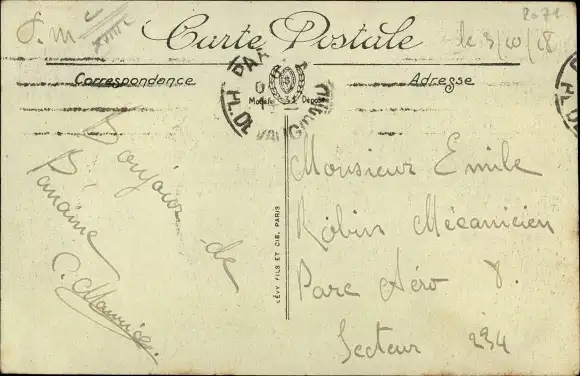 2071
F. M.
Carte Postale
le 3/10/18
Correspondance
Adresse
Modèle Déposé
PARIS
VAUGIRARD
Bonjour de
Paname
C. Maurice
LÉVY FILS ET CIE, PARIS
Monsieur Emile
Robin Mécanicien
Parc Aéro 8.
Secteur 234